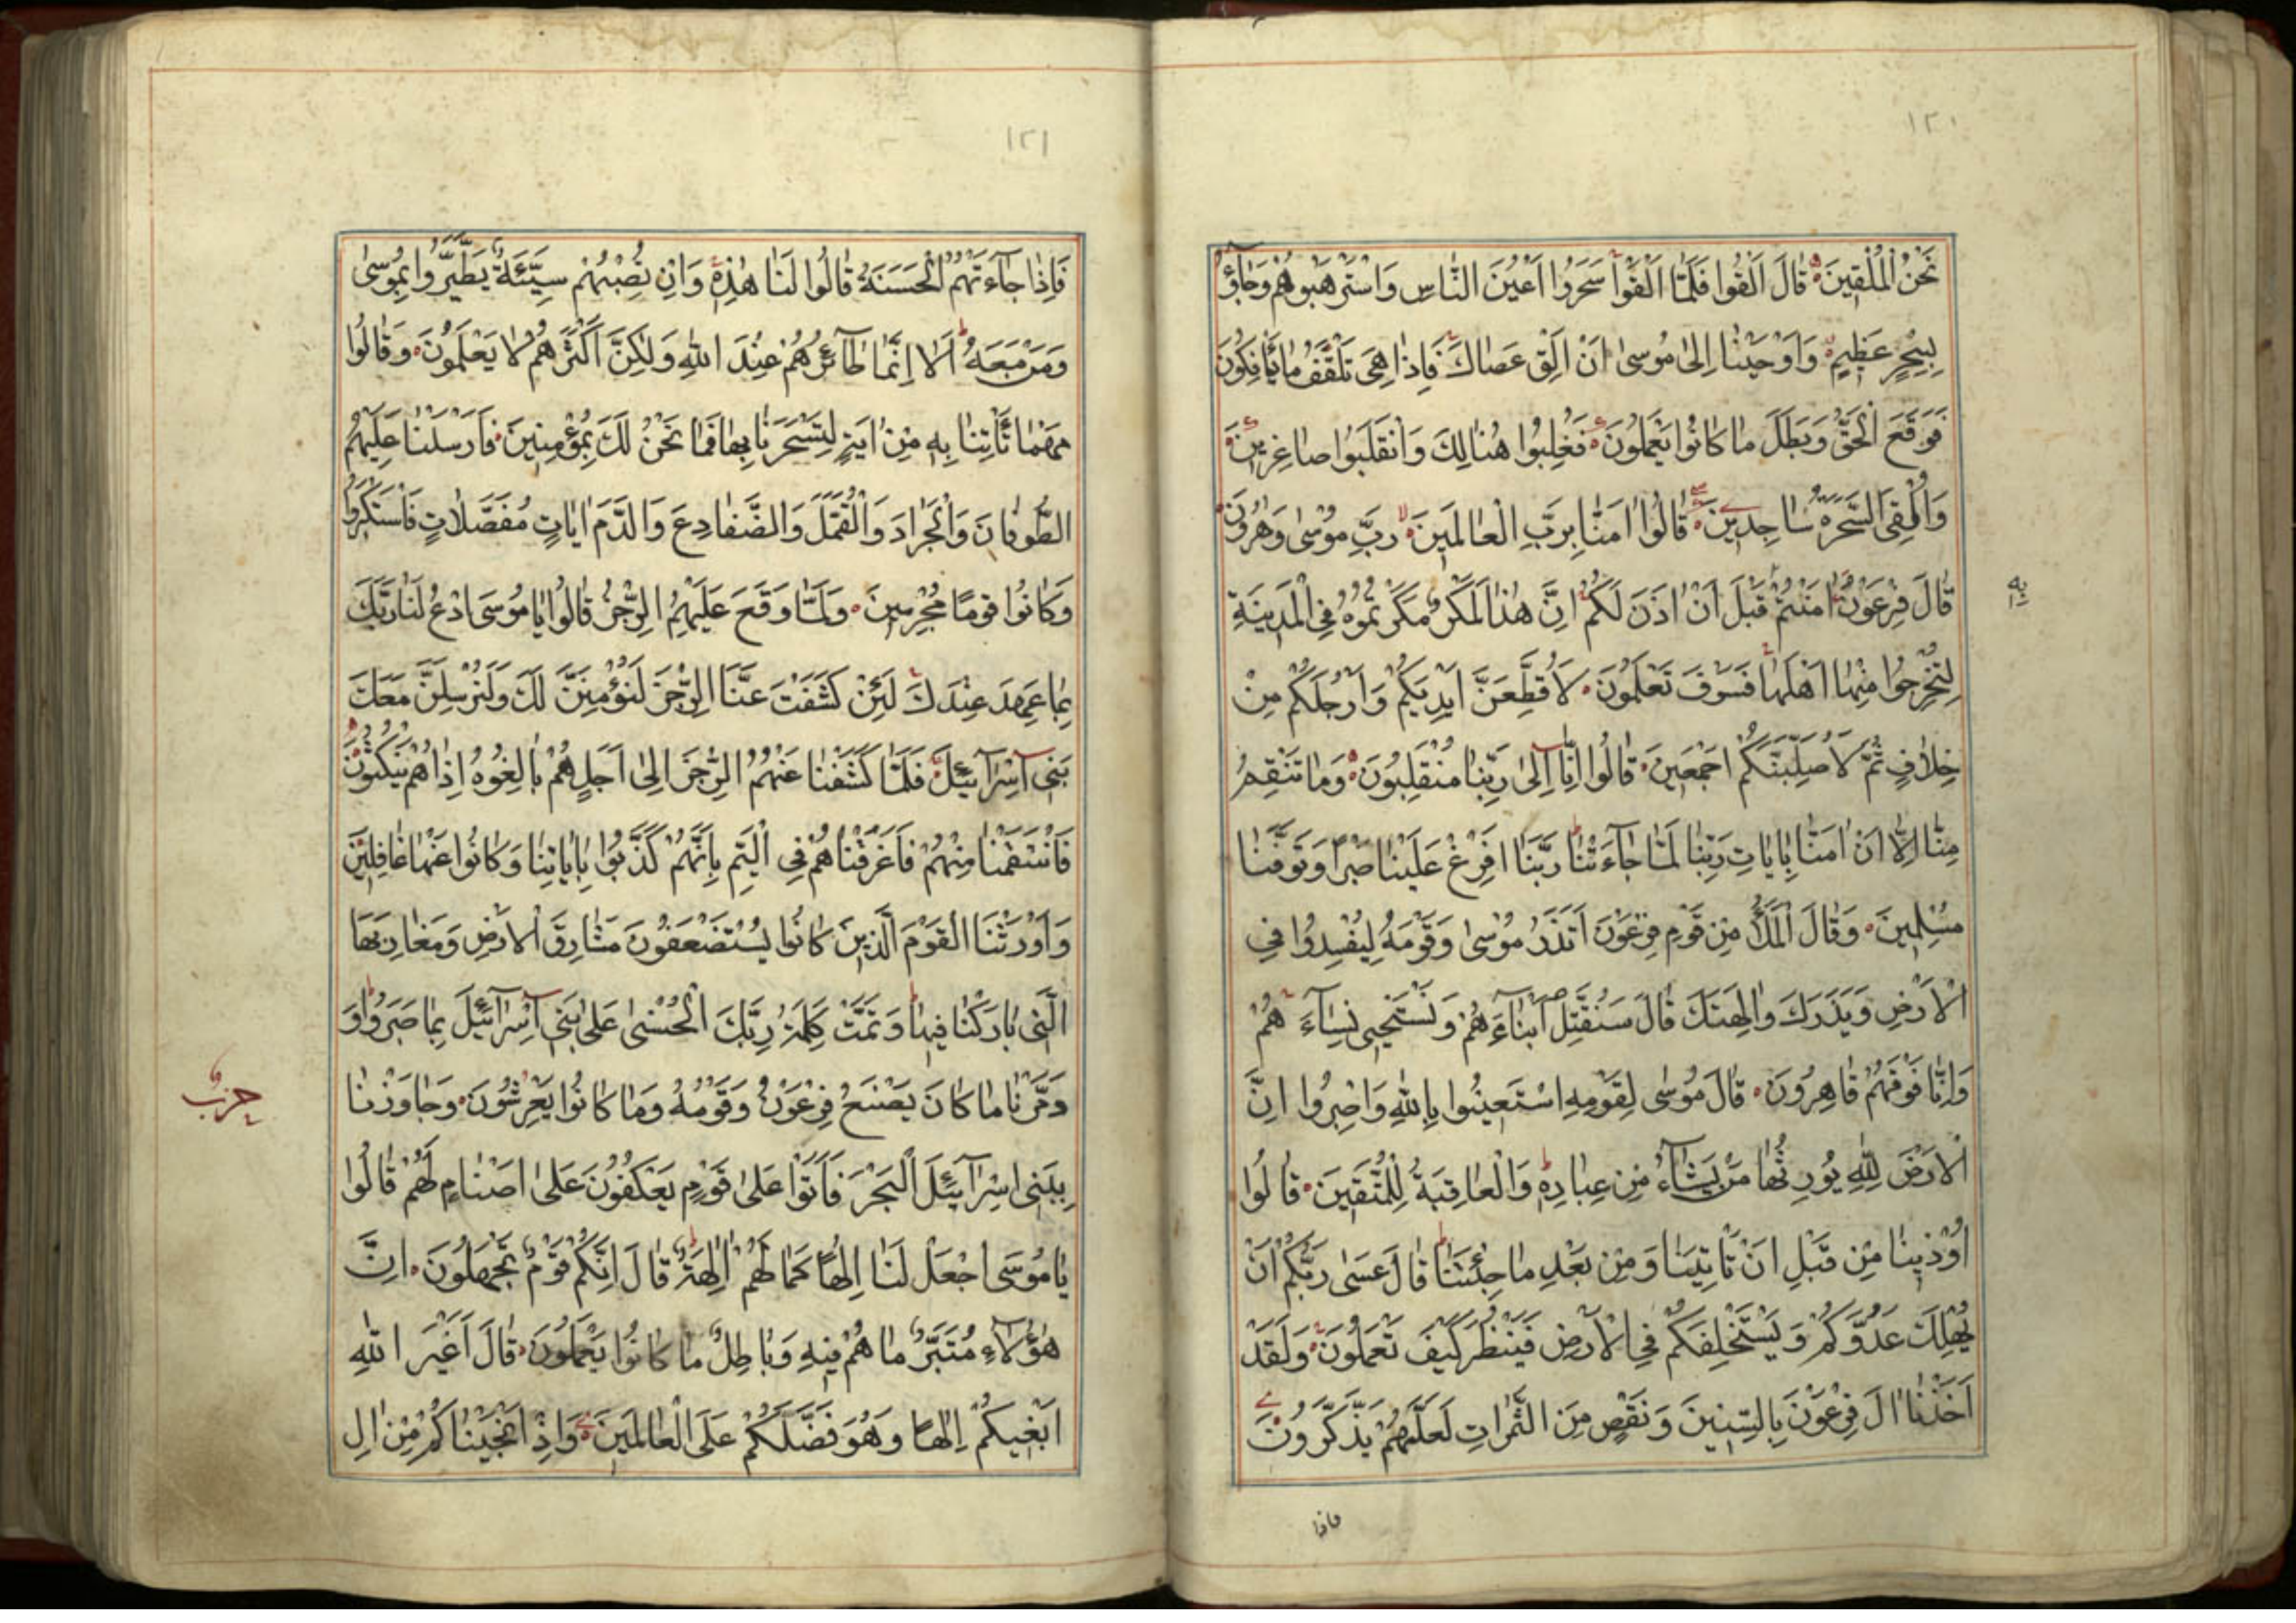 ١٢٠
نَحْنُ الْمُلْقِينَ قَالَ اَلْقُوا فَلَمَّا اَلْقَوْا سَحَرُوا اَعْيُنَ النَّاسِ وَاسْتَرْهَبُوهُمْ وَجَآؤُ
بِسِحْرٍ عَظِيمٍ وَاَوْحَيْنَا اِلٰى مُوسٰى اَنْ اَلْقِ عَصَاكَ فَاِذَا هِىَ تَلْقَفُ مَا يَأْفِكُونَ
فَوَقَعَ الْحَقُّ وَبَطَلَ مَا كَانُوا يَعْمَلُونَ فَغُلِبُوا هُنَالِكَ وَانْقَلَبُوا صَاغِرِينَ
وَاُلْقِىَ السَّحَرَةُ سَاجِدِينَ قَالُوا اٰمَنَّا بِرَبِّ الْعَالَمِينَ رَبِّ مُوسٰى وَهٰرُونَ
قَالَ فِرْعَوْنُ اٰمَنْتُمْ قَبْلَ اَنْ اٰذَنَ لَكُمْ اِنَّ هٰذَا لَمَكْرٌ مَكَرْتُمُوهُ فِى الْمَدِينَةِ
بِهِ
لِتُخْرِجُوا مِنْهَا اَهْلَهَا فَسَوْفَ تَعْلَمُونَ لَاُقَطِّعَنَّ اَيْدِيَكُمْ وَاَرْجُلَكُمْ مِنْ
خِلَافٍ ثُمَّ لَاُصَلِّبَنَّكُمْ اَجْمَعِينَ قَالُوا اِنَّآ اِلٰى رَبِّنَا مُنْقَلِبُونَ وَمَا تَنْقِمُ
مِنَّا اِلَّا اَنْ اٰمَنَّا بِاٰيَاتِ رَبِّنَا لَمَّا جَآءَتْنَا رَبَّنَا اَفْرِغْ عَلَيْنَا صَبْرًا وَتَوَفَّنَا
مُسْلِمِينَ وَقَالَ الْمَلَأُ مِنْ قَوْمِ فِرْعَوْنَ اَتَذَرُ مُوسٰى وَقَوْمَهُ لِيُفْسِدُوا فِى
الْاَرْضِ وَيَذَرَكَ وَاٰلِهَتَكَ قَالَ سَنُقَتِّلُ اَبْنَآءَهُمْ وَنَسْتَحْيِى نِسَآءَهُمْ
وَاِنَّا فَوْقَهُمْ قَاهِرُونَ قَالَ مُوسٰى لِقَوْمِهِ اسْتَعِينُوا بِاللّٰهِ وَاصْبِرُوا اِنَّ
الْاَرْضَ لِلّٰهِ يُورِثُهَا مَنْ يَشَآءُ مِنْ عِبَادِهِ وَالْعَاقِبَةُ لِلْمُتَّقِينَ قَالُوا
اُوذِينَا مِنْ قَبْلِ اَنْ تَأْتِيَنَا وَمِنْ بَعْدِ مَا جِئْتَنَا قَالَ عَسٰى رَبُّكُمْ اَنْ
يُهْلِكَ عَدُوَّكُمْ وَيَسْتَخْلِفَكُمْ فِى الْاَرْضِ فَيَنْظُرَ كَيْفَ تَعْمَلُونَ وَلَقَدْ
اَخَذْنَا اٰلَ فِرْعَوْنَ بِالسِّنِينَ وَنَقْصٍ مِنَ الثَّمَرَاتِ لَعَلَّهُمْ يَذَّكَّرُونَ
فاذا
١٢١
فَاِذَا جَآءَتْهُمُ الْحَسَنَةُ قَالُوا لَنَا هٰذِهِ وَاِنْ تُصِبْهُمْ سَيِّئَةٌ يَطَّيَّرُوا بِمُوسٰى
وَمَنْ مَعَهُ اَلَا اِنَّمَا طَآئِرُهُمْ عِنْدَ اللّٰهِ وَلٰكِنَّ اَكْثَرَهُمْ لَا يَعْلَمُونَ وَقَالُوا
مَهْمَا تَأْتِنَا بِهِ مِنْ اٰيَةٍ لِتَسْحَرَنَا بِهَا فَمَا نَحْنُ لَكَ بِمُؤْمِنِينَ فَاَرْسَلْنَا عَلَيْهِمُ
الطُّوفَانَ وَالْجَرَادَ وَالْقُمَّلَ وَالضَّفَادِعَ وَالدَّمَ اٰيَاتٍ مُفَصَّلَاتٍ فَاسْتَكْبَرُوا
وَكَانُوا قَوْمًا مُجْرِمِينَ وَلَمَّا وَقَعَ عَلَيْهِمُ الرِّجْزُ قَالُوا يَا مُوسَى ادْعُ لَنَا رَبَّكَ
بِمَا عَهِدَ عِنْدَكَ لَئِنْ كَشَفْتَ عَنَّا الرِّجْزَ لَنُؤْمِنَنَّ لَكَ وَلَنُرْسِلَنَّ مَعَكَ
بَنِى اِسْرَآئِيلَ فَلَمَّا كَشَفْنَا عَنْهُمُ الرِّجْزَ اِلٰى اَجَلٍ هُمْ بَالِغُوهُ اِذَا هُمْ يَنْكُثُونَ
فَانْتَقَمْنَا مِنْهُمْ فَاَغْرَقْنَاهُمْ فِى الْيَمِّ بِاَنَّهُمْ كَذَّبُوا بِاٰيَاتِنَا وَكَانُوا عَنْهَا غَافِلِينَ
وَاَوْرَثْنَا الْقَوْمَ الَّذِينَ كَانُوا يُسْتَضْعَفُونَ مَشَارِقَ الْاَرْضِ وَمَغَارِبَهَا
الَّتِى بَارَكْنَا فِيهَا وَتَمَّتْ كَلِمَةُ رَبِّكَ الْحُسْنٰى عَلٰى بَنِى اِسْرَآئِيلَ بِمَا صَبَرُوا وَ
وَدَمَّرْنَا مَا كَانَ يَصْنَعُ فِرْعَوْنُ وَقَوْمُهُ وَمَا كَانُوا يَعْرِشُونَ وَجَاوَزْنَا
حزب
بِبَنِى اِسْرَآئِيلَ الْبَحْرَ فَاَتَوْا عَلٰى قَوْمٍ يَعْكُفُونَ عَلٰى اَصْنَامٍ لَهُمْ قَالُوا
يَا مُوسَى اجْعَلْ لَنَا اِلٰهًا كَمَا لَهُمْ اٰلِهَةٌ قَالَ اِنَّكُمْ قَوْمٌ تَجْهَلُونَ اِنَّ
هٰؤُلَآءِ مُتَبَّرٌ مَا هُمْ فِيهِ وَبَاطِلٌ مَا كَانُوا يَعْمَلُونَ قَالَ اَغَيْرَ اللّٰهِ
اَبْغِيكُمْ اِلٰهًا وَهُوَ فَضَّلَكُمْ عَلَى الْعَالَمِينَ وَاِذْ اَنْجَيْنَاكُمْ مِنْ اٰلِ